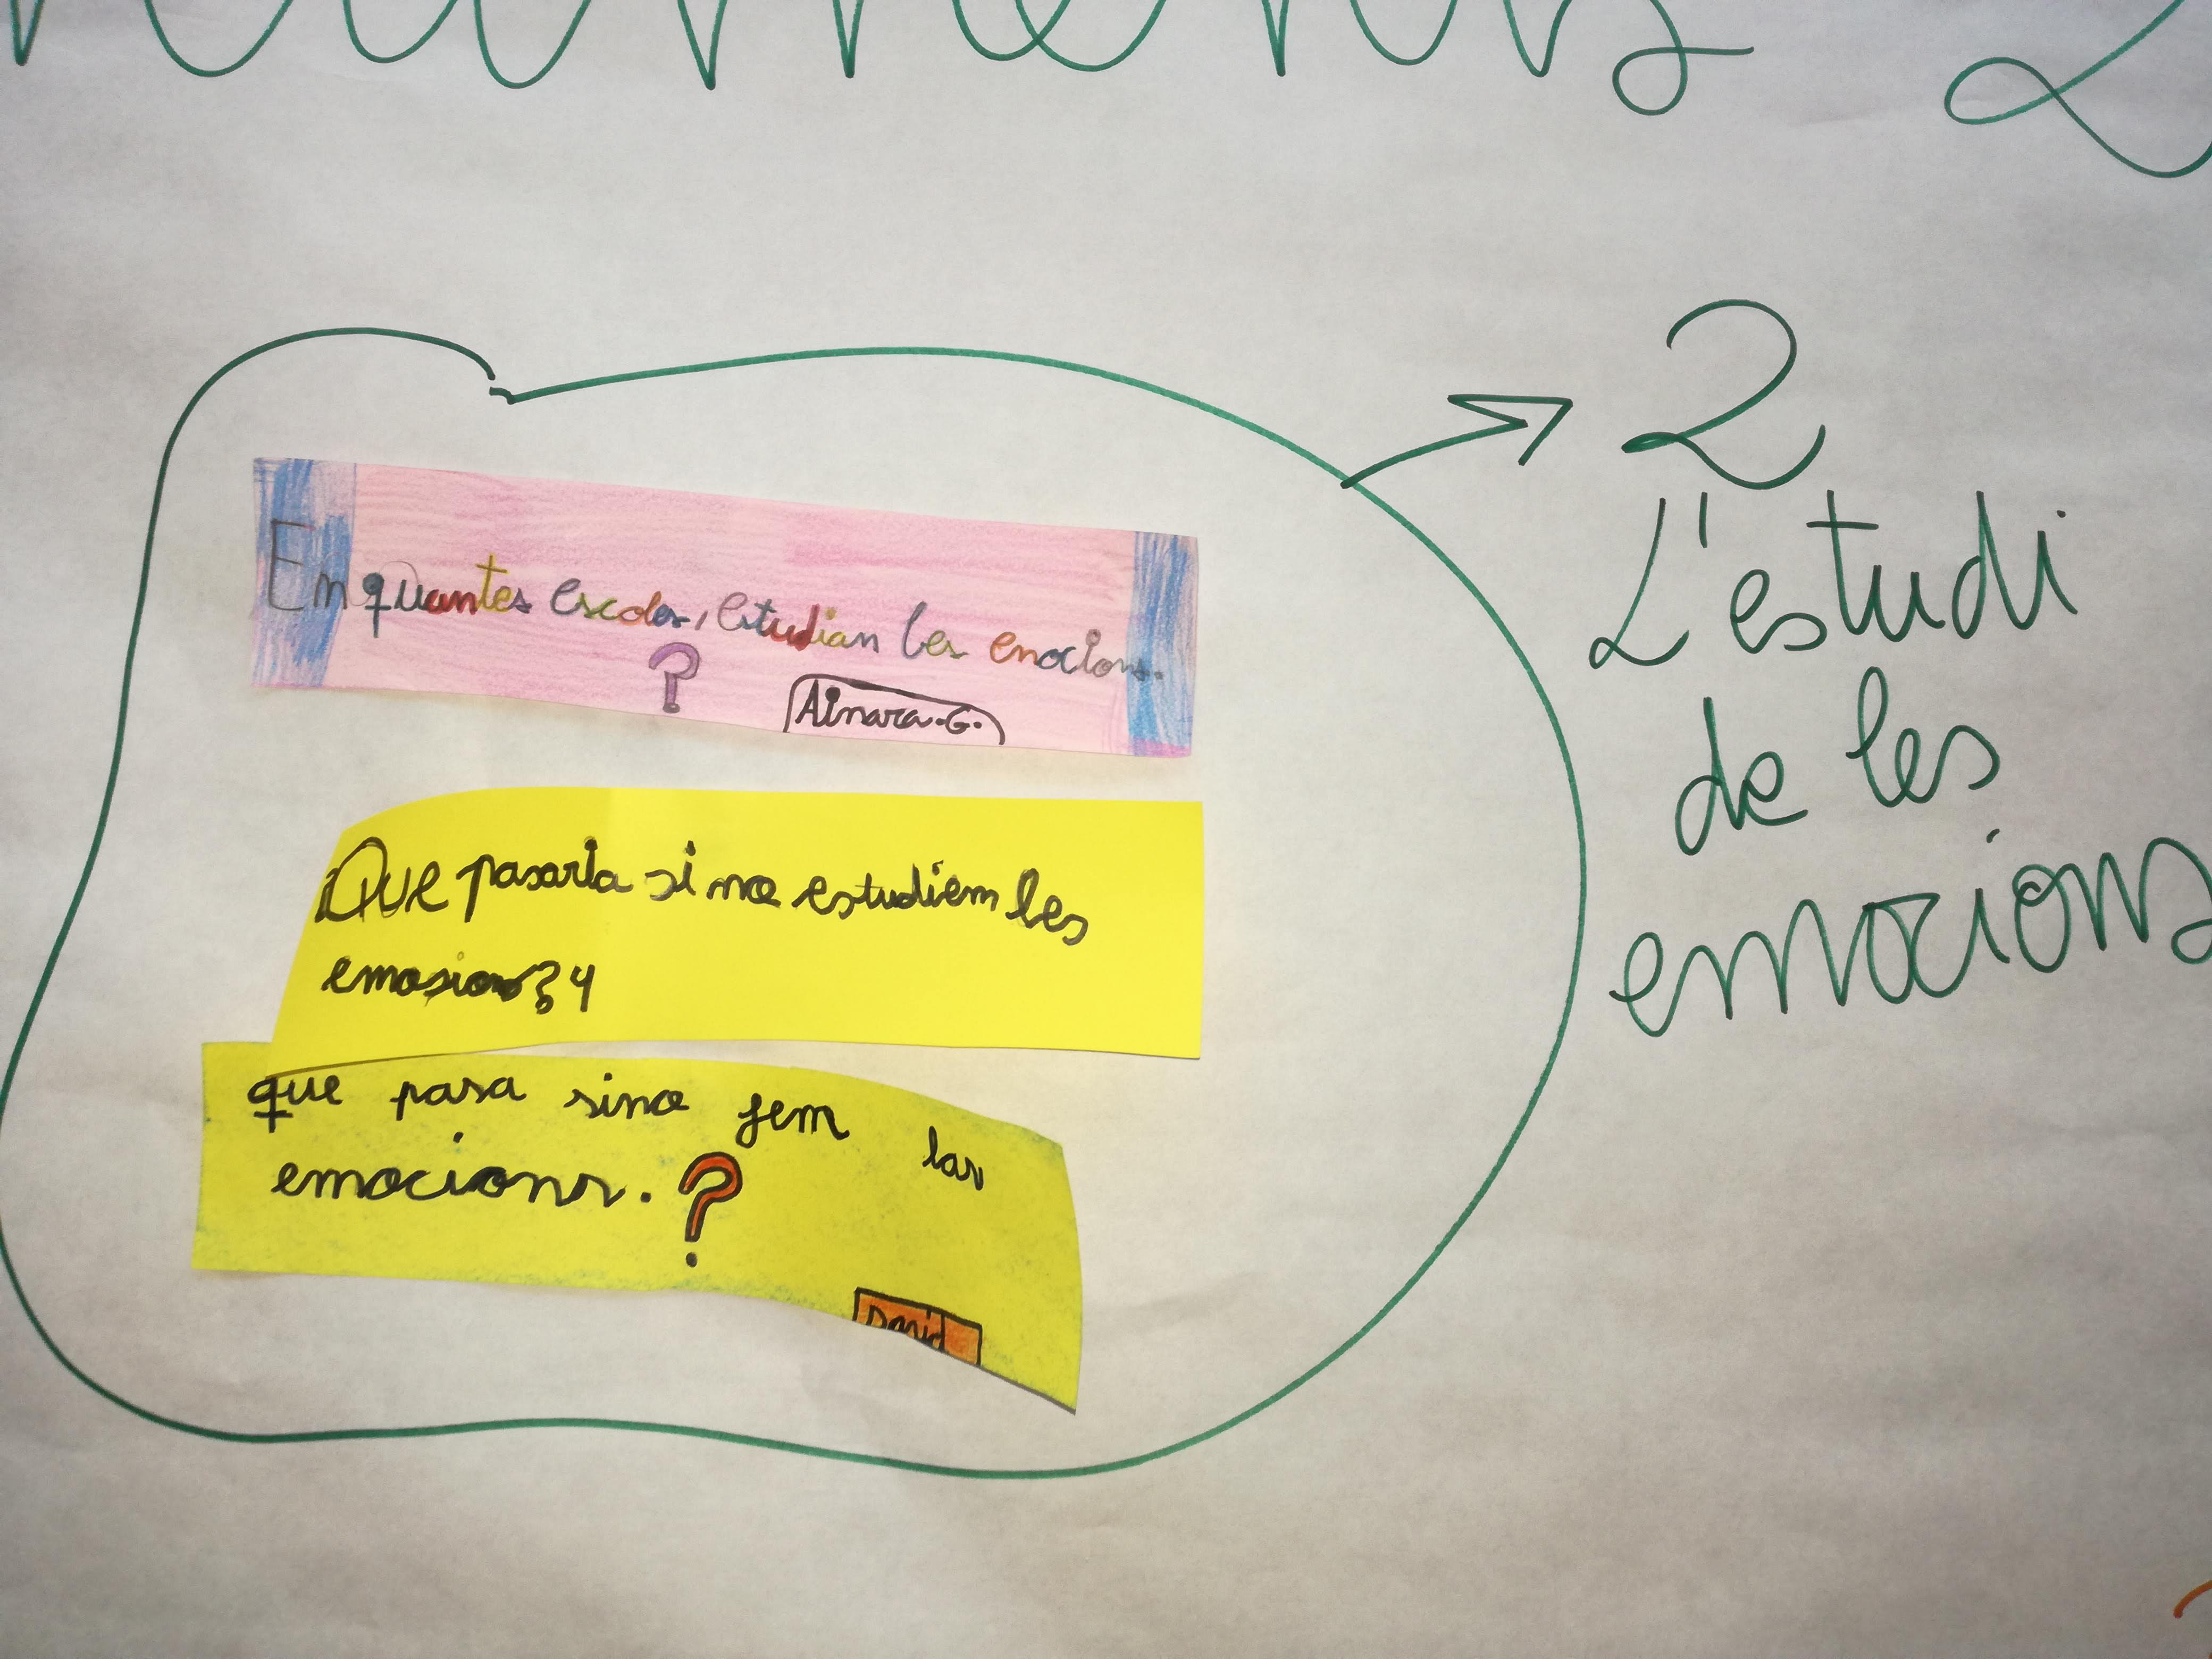 2
L'estudi
de les
emocions
En quantes escoles, estudian les enocions.
?
Ainara.G.
Que pasaria si no estudiem les
emosions?
que pasa sino fem las
emocions. ?
David